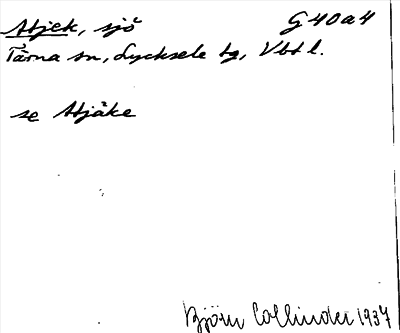 Atjek, sjö G 40 a 4
Tärna sn, Lycksele tg, Vbt l.
se Atjåke
Björn Collinder 1937